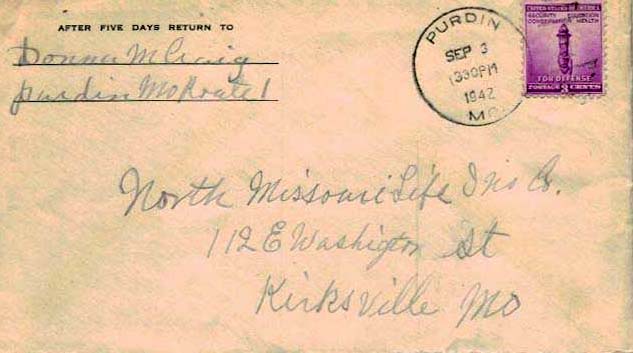 AFTER FIVE DAYS RETURN TO
Donna McCraig
Purdin Mo Route 1
PURDIN
SEP 3
1330PM
1942
MO
UNITED STATES OF AMERICA
SECURITY EDUCATION
CONSERVATION HEALTH
FOR DEFENSE
POSTAGE 3 CENTS
North Missouri Life Ins Co.
112 E Washigton St
Kirksville Mo